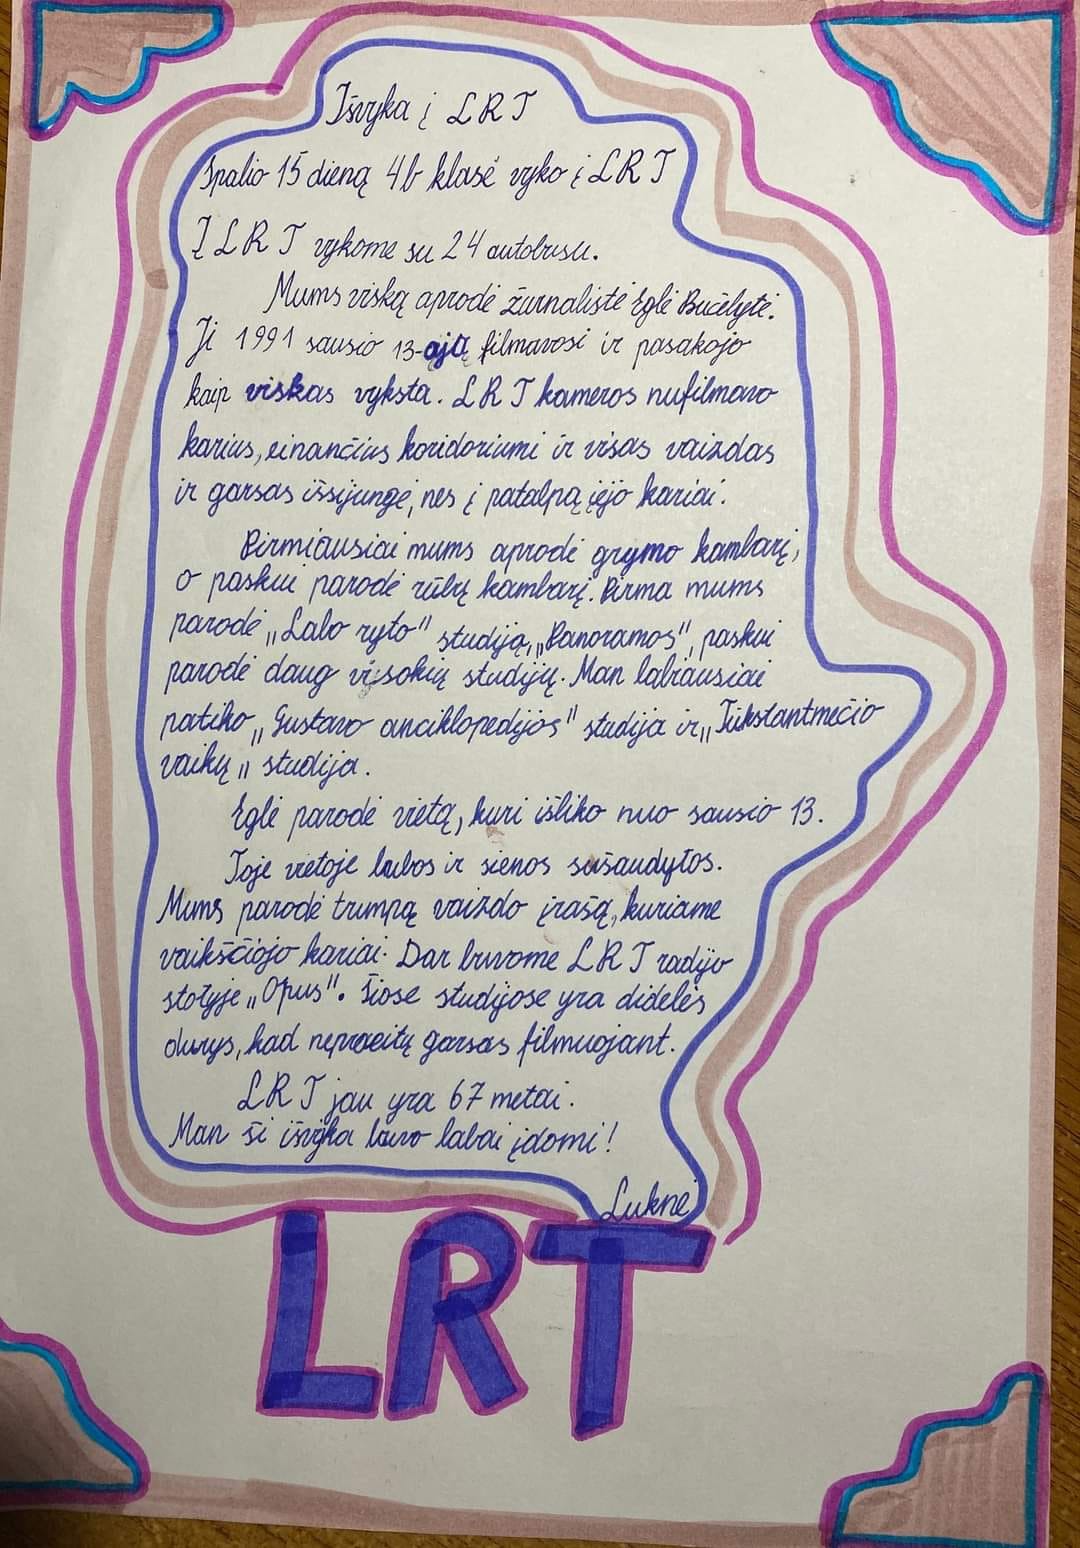 Išvyka į LRT
Spalio 15 dieną 4b klasė vyko į LRT
Į LRT vykome su 24 autobusu.
Mums viską aprodė žurnalistė Eglė Bučelytė.
Ji 1991 sausio 13-ąją filmavosi ir pasakojo
kaip viskas vyksta. LRT kameros nufilmavo
karius, einančius koridoriumi ir visas vaizdas
ir garsas išsijungė, nes į patalpą įėjo kariai.
Pirmiausiai mums aprodė grymo kambarį,
o paskui parodė rūbų kambarį. Pirma mums
parodė „Labo ryto" studiją, „Panoramos", paskui
parodė daug visokių studijų. Man labiausiai
patiko „Gustavo anciklopedijos" studija ir „Tūkstantmečio
vaikų„ studija.
Eglė parodė vietą, kuri išliko nuo sausio 13.
Toje vietoje lubos ir sienos sušaudytos.
Mums parodė trumpą vaizdo įrašą, kuriame
vaikščiojo kariai. Dar buvome LRT radijo
stotyje „Opus". Šiose studijose yra didelės
durys, kad nepraeitų garsas filmuojant.
LRT jau yra 67 metai.
Man ši išvyka buvo labai įdomi!
Luknė
LRT